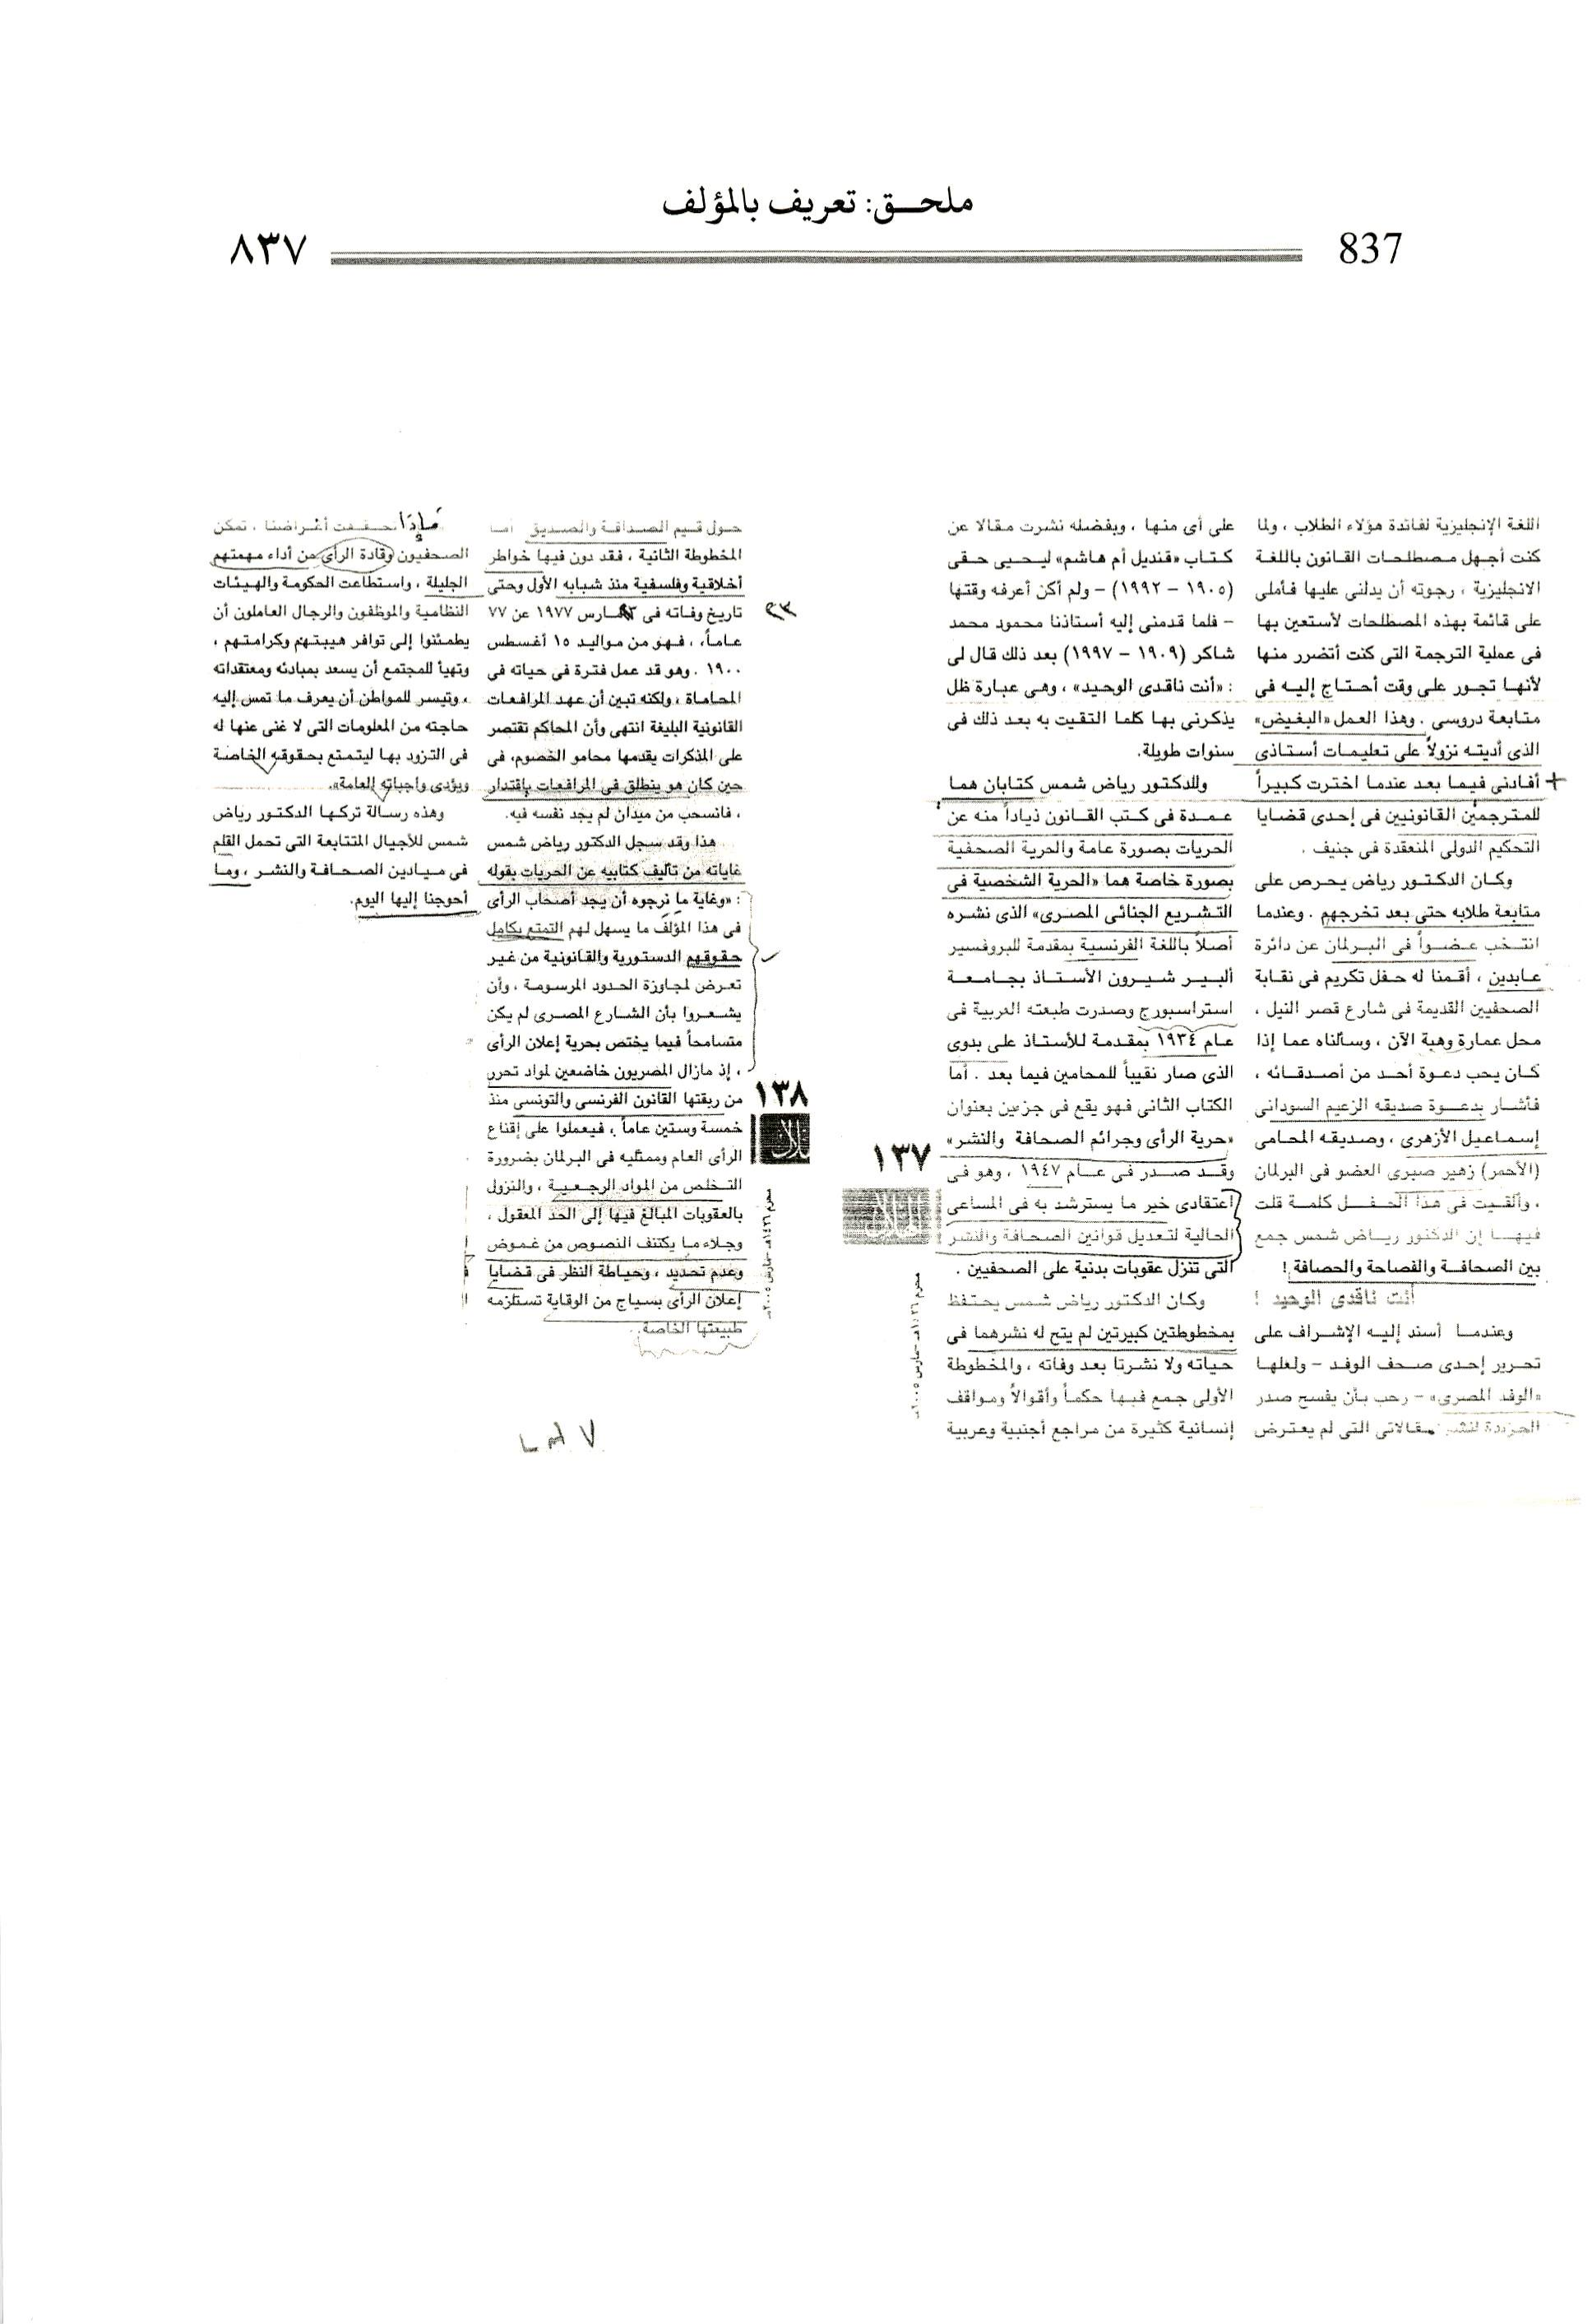 ملحـــق: تعريف بالمؤلف
837
٨٣٧
اللغة الإنجليزية لفائدة هؤلاء الطلاب ، ولما
كنت أجهل مصطلحات القانون باللغة
الانجليزية ، رجوته أن يدلنى عليها فأملى
على قائمة بهذه المصطلحات لأستعين بها
فى عملية الترجمة التى كنت أتضرر منها
لأنها تجور على وقت أحتاج إليه فى
متابعة دروسى . وهذا العمل «البغيض»
الذى أديته نزولاً على تعليمات أستاذى
أفادنى فيما بعد عندما اخترت كبيراً
للمترجمين القانونيين فى إحدى قضايا
التحكيم الدولى المنعقدة فى جنيف .
وكان الدكتور رياض يحرص على
متابعة طلابه حتى بعد تخرجهم . وعندما
انتخب عضواً فى البرلمان عن دائرة
عابدين ، أقمنا له حفل تكريم فى نقابة
الصحفيين القديمة فى شارع قصر النيل ،
محل عمارة وهبة الآن ، وسألناه عما إذا
كان يحب دعوة أحد من أصدقائه ،
فأشار بدعوة صديقه الزعيم السودانى
إسماعيل الأزهرى ، وصديقه المحامى
(الأحمر) زهير صبرى العضو فى البرلمان
، وألقيت فى هذا الحفل كلمة قلت
فيها إن الدكتور رياض شمس جمع
بين الصحافة والفصاحة والحصافة !
أنت ناقدى الوحيد !
وعندما أسند إليه الإشراف على
تحرير إحدى صحف الوفد – ولعلها
«الوفد المصرى» – رحب بأن يفسح صدر
الجريدة لنشر مقالاتى التى لم يعترض
على أى منها ، وبفضله نشرت مقالا عن
كتاب «قنديل أم هاشم» ليحيى حقى
(١٩٠٥ – ١٩٩٢) – ولم أكن أعرفه وقتها
– فلما قدمنى إليه أستاذنا محمود محمد
شاكر (١٩٠٩ – ١٩٩٧) بعد ذلك قال لى
: «أنت ناقدى الوحيد» ، وهى عبارة ظل
يذكرنى بها كلما التقيت به بعد ذلك فى
سنوات طويلة.
وللدكتور رياض شمس كتابان هما
عمدة فى كتب القانون ذياداً منه عن
الحريات بصورة عامة والحرية الصحفية
بصورة خاصة هما «الحرية الشخصية فى
التشريع الجنائى المصرى» الذى نشره
أصلاً باللغة الفرنسية بمقدمة للبروفسير
ألبير شيرون الأستاذ بجامعة
استراسبورج وصدرت طبعته العربية فى
عام ١٩٣٤ بمقدمة للأستاذ على بدوى
الذى صار نقيباً للمحامين فيما بعد . أما
الكتاب الثانى فهو يقع فى جزءين بعنوان
«حرية الرأى وجرائم الصحافة والنشر»
وقد صدر فى عام ١٩٤٧ ، وهو فى
اعتقادى خير ما يسترشد به فى المساعى
الحالية لتعديل قوانين الصحافة والنشر
التى تنزل عقوبات بدنية على الصحفيين .
وكان الدكتور رياض شمس يحتفظ
بمخطوطتين كبيرتين لم يتح له نشرهما فى
حياته ولا نشرتا بعد وفاته ، والمخطوطة
الأولى جمع فيها حكماً وأقوالاً ومواقف
إنسانية كثيرة من مراجع أجنبية وعربية
١٣٧
محرم ١٤٢٦هـ -مارس ٢٠٠٥مـ
حول قيم الصداقة والصديق أما
المخطوطة الثانية ، فقد دون فيها خواطر
أخلاقية وفلسفية منذ شبابه الأول وحتى
تاريخ وفاته فى ٢٣ مارس ١٩٧٧ عن ٧٧
عاماً، ، فهو من مواليد ١٥ أغسطس
١٩٠٠ . وهو قد عمل فترة فى حياته فى
المحاماة ، ولكنه تبين أن عهد المرافعات
القانونية البليغة انتهى وأن المحاكم تقتصر
على المذكرات يقدمها محامو الخصوم، فى
حين كان هو ينطلق فى المرافعات باقتدار
، فانسحب من ميدان لم يجد نفسه فيه.
هذا وقد سجل الدكتور رياض شمس
غاياته من تأليف كتابيه عن الحريات بقوله
: «وغاية ما نرجوه أن يجد أصحاب الرأى
فى هذا المؤلف ما يسهل لهم التمتع بكامل
حقوقهم الدستورية والقانونية من غير
تعرض لمجاوزة الحدود المرسومة ، وأن
يشعروا بأن الشارع المصرى لم يكن
متسامحاً فيما يختص بحرية إعلان الرأى
، إذ مازال المصريون خاضعين لمواد تحرر
من ربقتها القانون الفرنسى والتونسى منذ
خمسة وستين عاماً ، فيعملوا على إقناع
الرأى العام وممثليه فى البرلمان بضرورة
التخلص من المواد الرجعية ، والنزول
بالعقوبات المبالغ فيها إلى الحد المعقول ،
وجلاء ما يكتنف النصوص من غموض
وعدم تحديد ، وحياطة النظر فى قضايا
إعلان الرأى بسياج من الوقاية تستلزمه
طبيعتها الخاصة.
٢٣
١٣٨
الهلال
محرم ١٤٢٦هـ -مارس ٢٠٠٥مـ
فإذا تحققت أغراضنا ، تمكن
الصحفيون وقادة الرأى من أداء مهمتهم
الجليلة ، واستطاعت الحكومة والهيئات
النظامية والموظفون والرجال العاملون أن
يطمئنوا إلى توافر هيبتهم وكرامتهم ،
وتهيأ للمجتمع أن يسعد بمبادئه ومعتقداته
، وتيسر للمواطن أن يعرف ما تمس إليه
حاجته من المعلومات التى لا غنى عنها له
فى التزود بها ليتمتع بحقوقه الخاصة
ويؤدى واجباته العامة».
وهذه رسالة تركها الدكتور رياض
شمس للأجيال المتتابعة التى تحمل القلم
فى ميادين الصحافة والنشر ، وما
أحوجنا إليها اليوم.